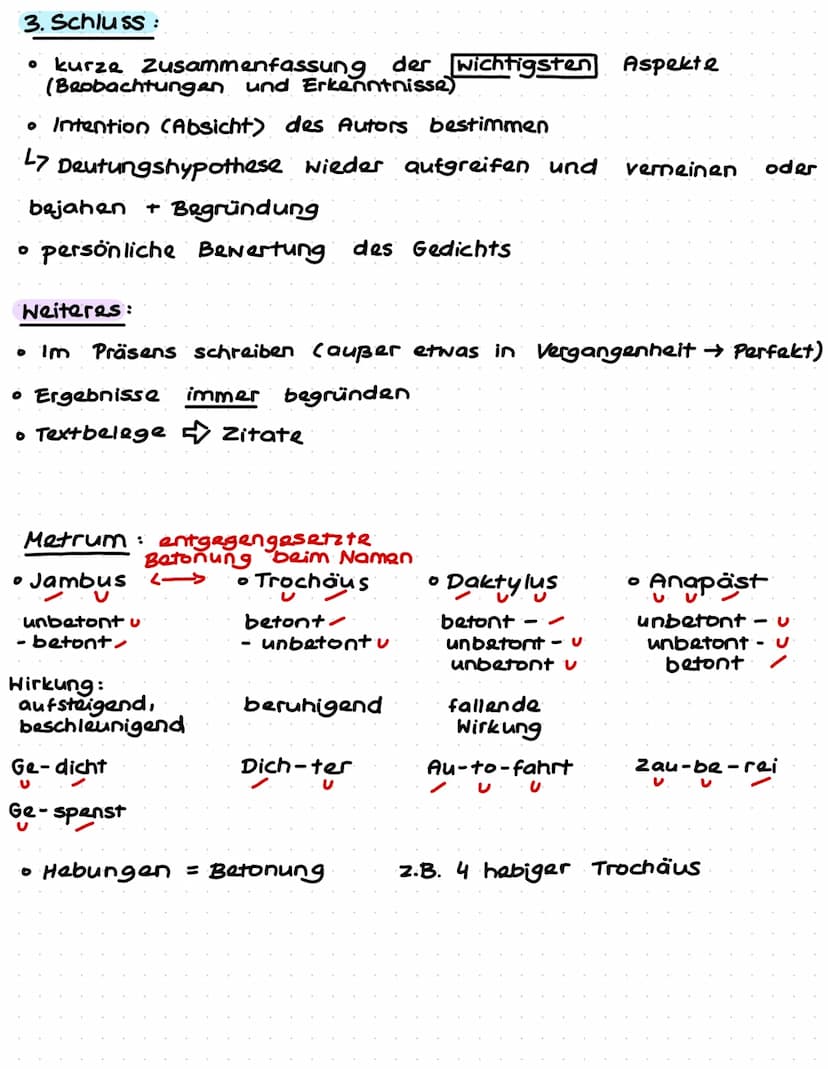 3. Schluss:
• kurze Zusammenfassung der wichtigsten Aspekte
(Beobachtungen und Erkenntnisse)
• Intention (Absicht) des Autors bestimmen
↳ Deutungshypothese wieder aufgreifen und verneinen oder
bejahen + Begründung
• persönliche Bewertung des Gedichts
Weiteres:
• Im Präsens schreiben (außer etwas in Vergangenheit → Perfekt)
• Ergebnisse immer begründen
• Textbelege ⇨ Zitate
Metrum: entgegengesetzte
Betonung beim Namen
• Jambus ⟷ • Trochäus • Daktylus • Anapäst
unbetont ∪ betont / betont - / unbetont - ∪
- betont / - unbetont ∪ unbetont - ∪ unbetont - ∪
unbetont ∪ betont /
Wirkung:
aufsteigend, beruhigend fallende
beschleunigend Wirkung
Ge-dicht Dich-ter Au-to-fahrt Zau-be-rei
Ge-spenst
• Hebungen = Betonung z.B. 4 hebiger Trochäus